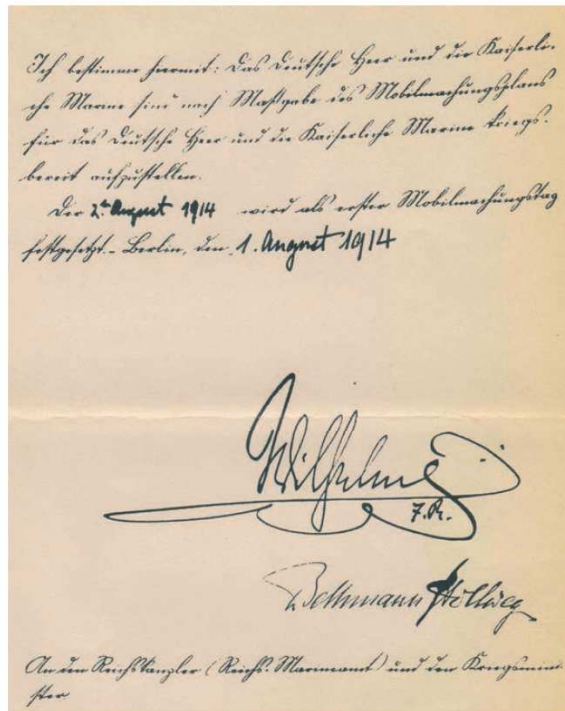 Ich bestimme hiermit: Das Deutsche Heer und die Kaiserli-
che Marine sind nach Maßgabe des Mobilmachungsplans
für das Deutsche Heer und die Kaiserliche Marine kriegs-
bereit aufzustellen.
Der 2te August 1914 wird als erster Mobilmachungstag
festgesetzt.- Berlin, den 1. August 1914
Wilhelm
I.R.
v Bethmann Hollweg
An den Reichskanzler (Reichs-Marineamt) und den Kriegsmini-
ster